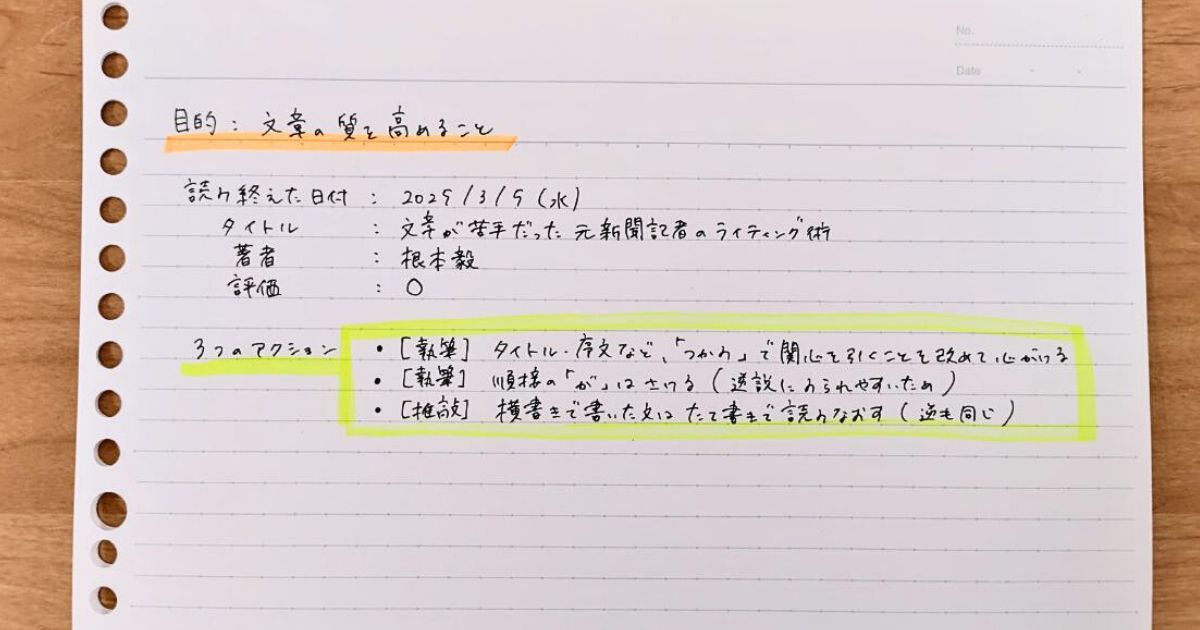 No.
Date
目的：文章の質を高めること
読み終えた日付：2025/3/5（水）
タイトル：文章が苦手だった元新聞記者のライティング術
著者：根本毅
評価：○
3つのアクション
・［執筆］タイトル・序文など、「つかみ」で関心を引くことを改めて心がける
・［執筆］順接の「が」はさける（逆説にみられやすいため）
・［推敲］横書きで書いた文はたて書きで読みなおす（逆も同じ）